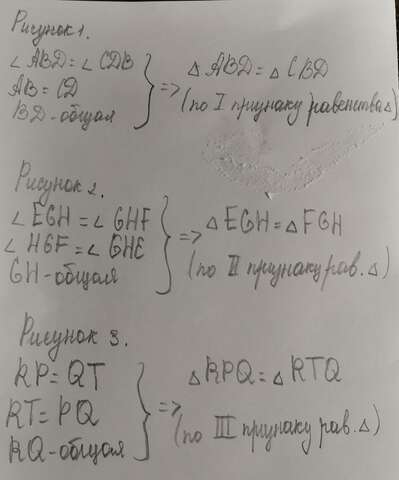 Рисунок 1.
∠ABD = ∠CDB
AB = CD
BD - общая
=> △ABD = △CBD
(по I признаку равенства △)
Рисунок 2.
∠EGH = ∠GHF
∠HGF = ∠GHE
GH - общая
=> △EGH = △FGH
(по II признаку рав. △)
Рисунок 3.
RP = QT
RT = PQ
RQ - общая
=> △RPQ = △RTQ
(по III признаку рав. △)